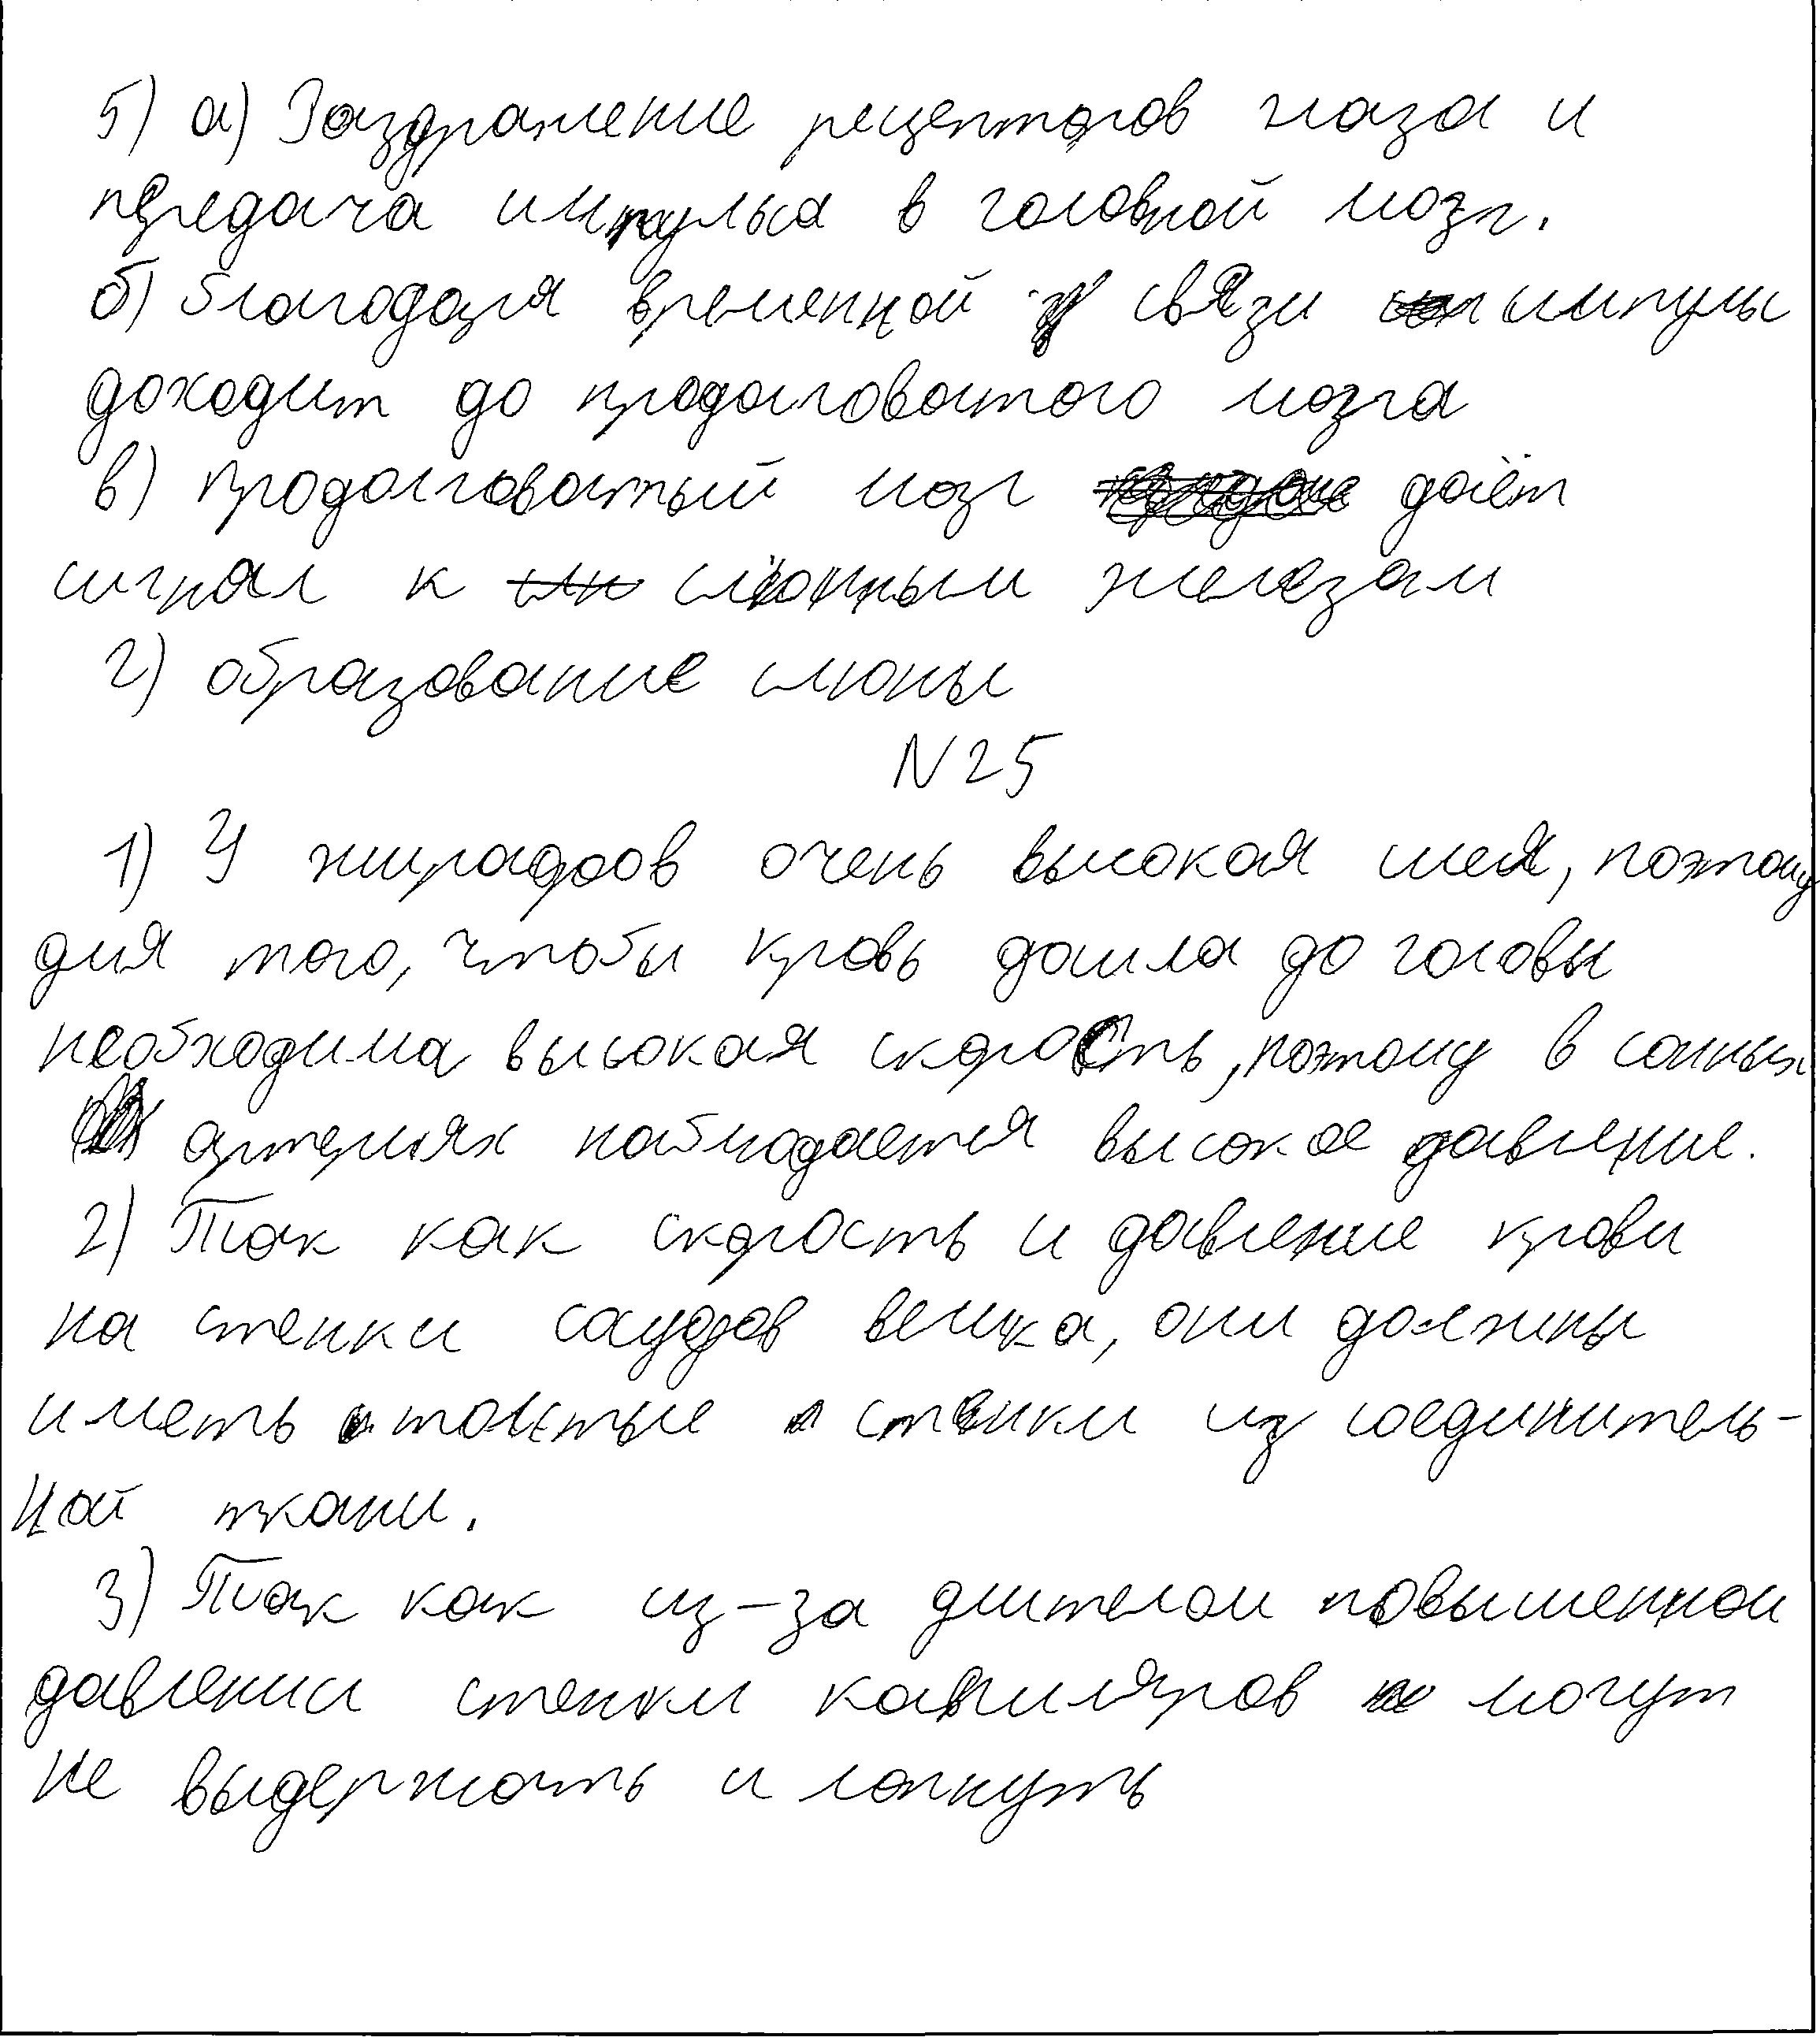 5) а) Раздражение рецепторов глаза и
передача импульса в головной мозг.
б) благодаря временной связи импульс
доходит до продолговатого мозга
в) продолговатый мозг даёт
сигнал к слюнным железам
г) образование слюны
N25
1) У жирафов очень высокая шея, поэтому
для того, чтобы кровь дошла до головы
необходима высокая скорость, поэтому в сонных
артериях наблюдается высокое давление.
2) Так как скорость и давление крови
на стенки сосудов велика, они должны
иметь толстые стенки из соединитель-
ной ткани.
3) Так как из-за повышенной
давлении стенки капиляров могут
не выдержать и лопнуть